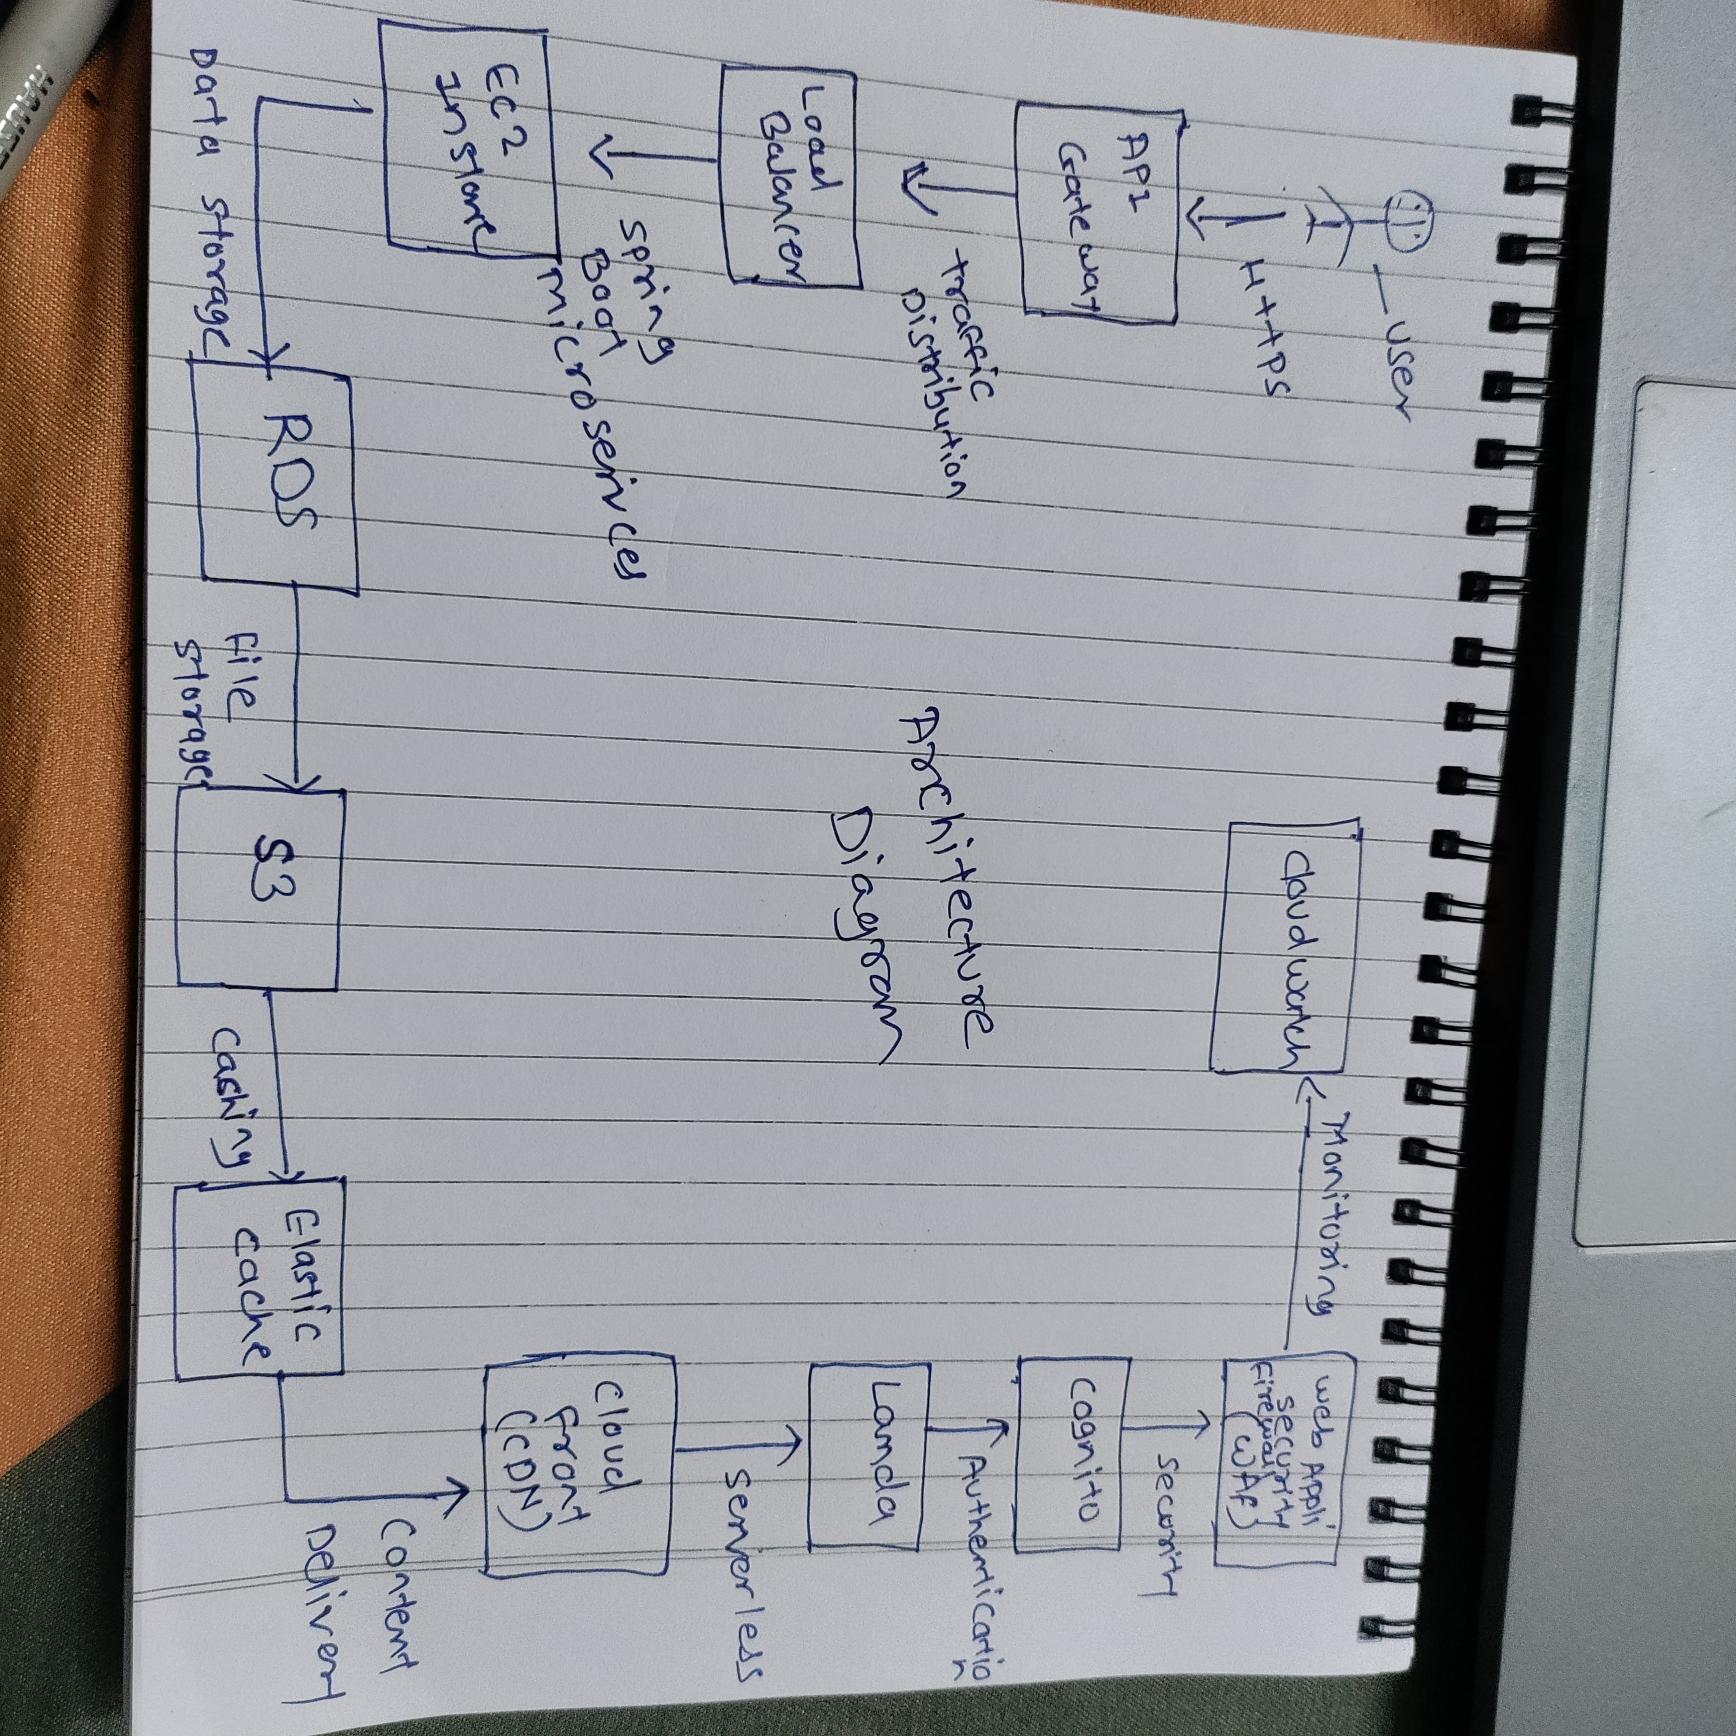 user
HttPS
API
Gateway
traffic
Distribution
Load
Balancer
Spring
Boot
microserivces
EC2
Instance
Data storage
RDS
File
storage
S3
Cashing
Elastic
cache
Content
Delivery
Cloud
Front
(CDN)
Serverless
Lamda
Authentication
Cognito
Security
Web Appli
security
Firewall
(WAF)
Monitoring
Cloudwatch
Architecture
Diagram